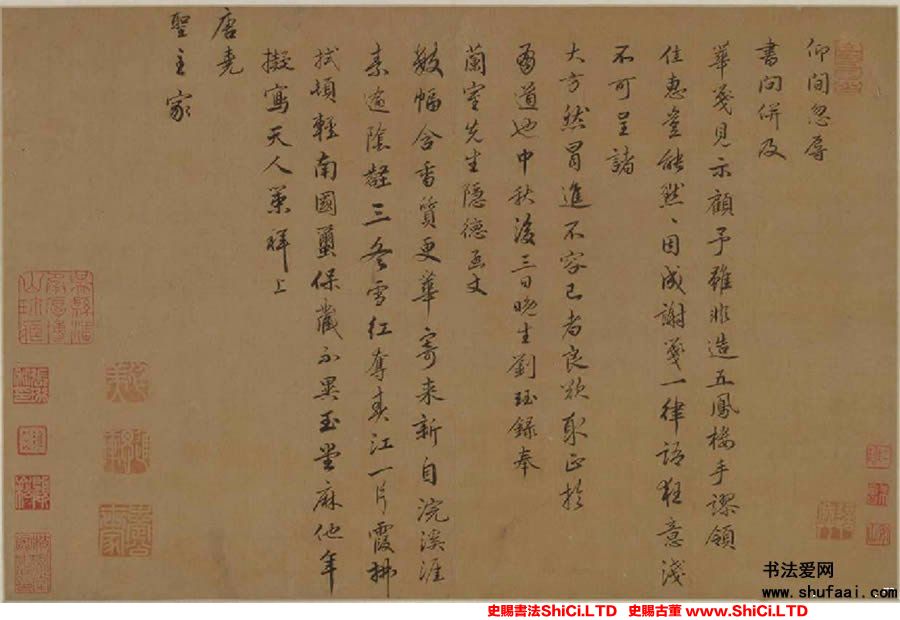 仰間忽辱
書問併及
華箋見示顧予雖非造五鳳樓手謬領
佳惠豈能默〻因成謝箋一律語狂意淺
不可呈諸
大方然冒進不容已者良欲取正於
有道也中秋後三日晚生劉珏錄奉
蘭室先生隱德函丈
數幅含香質更華寄来新自浣溪涯
素遮陰壑三冬雪紅奪春江一片霞拂
拭頓輕南國蠒保藏不異玉堂麻他年
擬寫天人策拜上
唐堯
聖主家
书法爱网
www.shufaai.com
史賜書法ShiCi.LTD 史賜古董 www.ShiCi.LTD